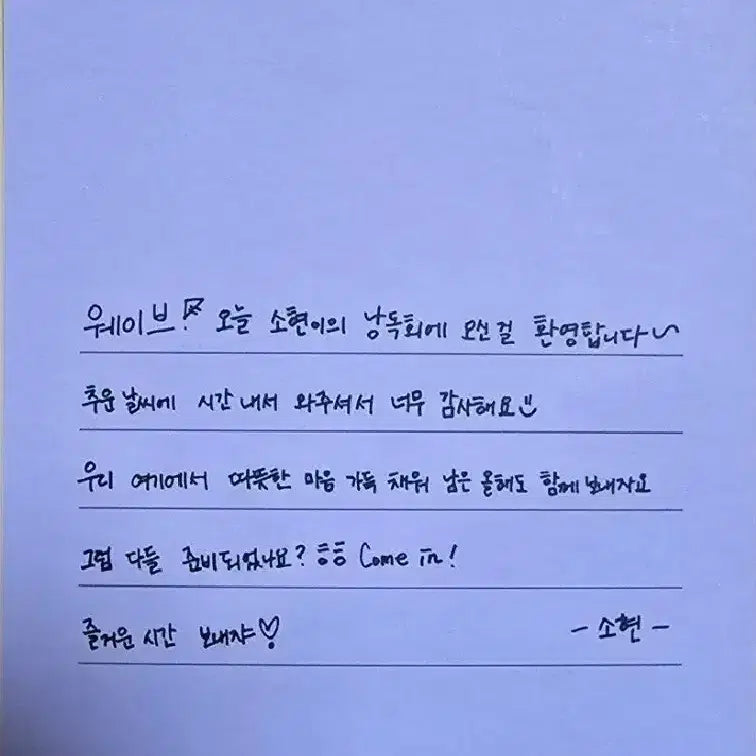 웨이브! 오늘 소현이의 낭독회에 오신걸 환영합니다~
추운 날씨에 시간 내서 와주셔서 너무 감사해요
우리 여기에서 따뜻한 마음 가득 채워 남은 올해도 함께 보내자요
그럼 다들 준비되었나요? ㅎㅎ Come in!
즐거운 시간 보내쟈♡ - 소현 -